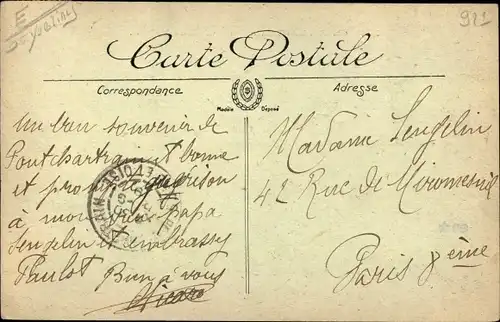 E
S. Yvelines
921
Carte Postale
Correspondance
Adresse
Modèle Déposé
Un bon souvenir de
Pontchartrain et bonne
et prompte guérison
à mon gros papa
Lengelin embrassy
Paulot Bien à vous
Madame Lengelin
42 Rue de Miromesnil
Paris 8eme